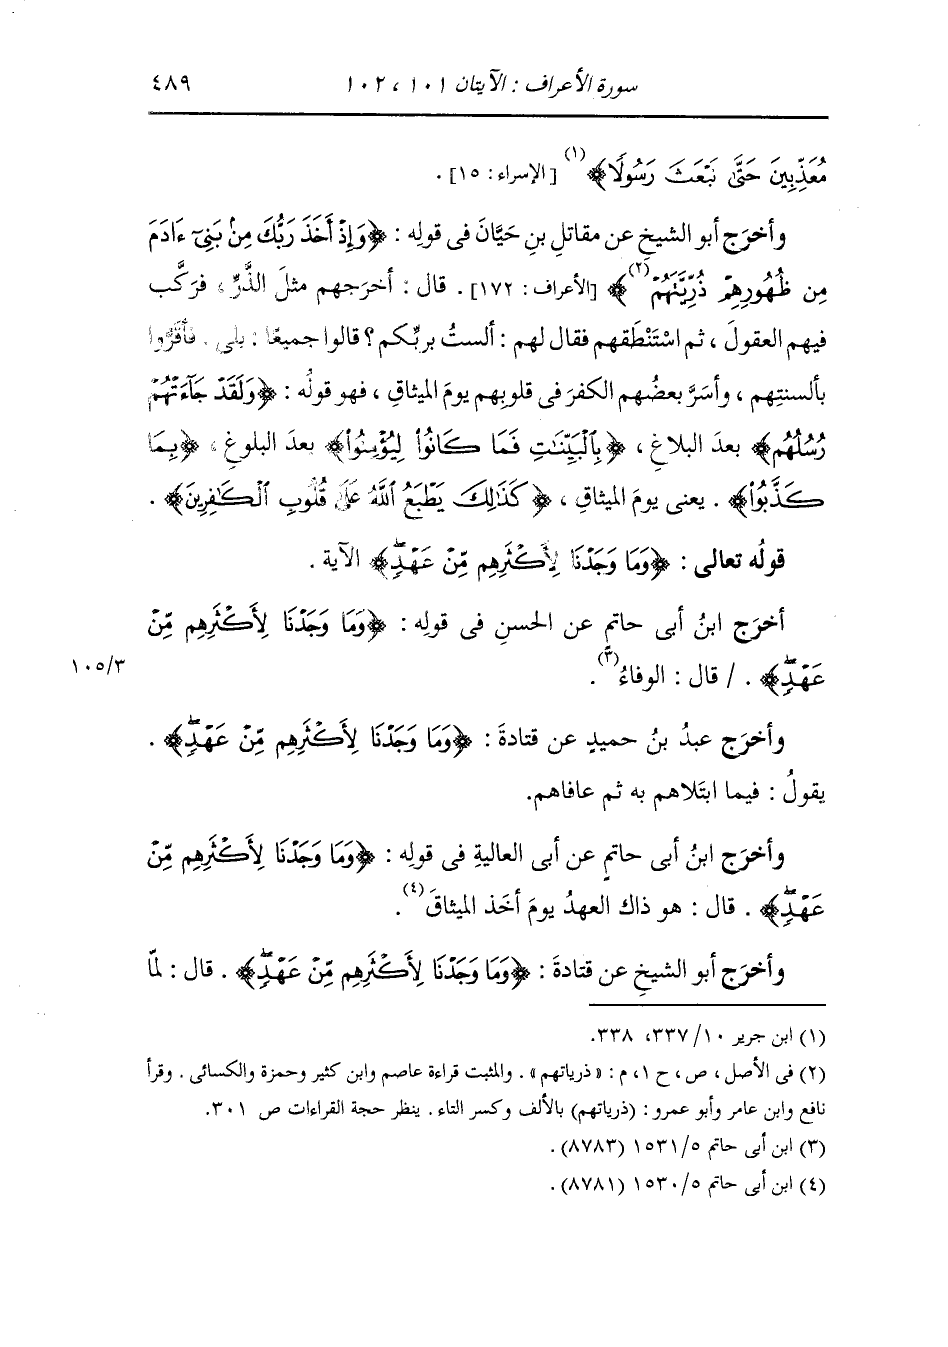 سورة الأعراف : الآيتان ١٠١ ، ١٠٢ ٤٨٩
مُعَذِّبِينَ حَتَّىٰ نَبْعَثَ رَسُولًا﴾(١) [الإسراء: ١٥] .
وأخرَج أبو الشيخ عن مقاتلِ بنِ حَيَّانَ فى قولِه : ﴿وَإِذْ أَخَذَ رَبُّكَ مِنْ بَنِىٓ ءَادَمَ
مِن ظُهُورِهِمْ ذُرِّيَّتَهُمْ(٢)﴾ [الأعراف: ١٧٢] . قال : أخرَجهم مثلَ الذَّرِّ ، فرَكَّب
فيهم العقولَ ، ثم اسْتَنْطَقهم فقال لهم : ألستُ بربِّكم ؟ قالوا جميعًا : بلى . فأقَرُّوا
بألسنتِهم ، وأسَرَّ بعضُهم الكفرَ فى قلوبِهم يومَ الميثاقِ ، فهو قولُه : ﴿وَلَقَدْ جَآءَتْهُمْ
رُسُلُهُم﴾ بعدَ البلاغِ ، ﴿بِٱلْبَيِّنَٰتِ فَمَا كَانُوا۟ لِيُؤْمِنُوا۟﴾ بعدَ البلوغِ ، ﴿بِمَا
كَذَّبُوا۟﴾ . يعنى يومَ الميثاقِ ، ﴿كَذَٰلِكَ يَطْبَعُ ٱللَّهُ عَلَىٰ قُلُوبِ ٱلْكَٰفِرِينَ﴾ .
قولُه تعالى : ﴿وَمَا وَجَدْنَا لِأَكْثَرِهِم مِّنْ عَهْدٍۖ﴾ الآية .
أخرَج ابنُ أبى حاتمٍ عن الحسنِ فى قولِه : ﴿وَمَا وَجَدْنَا لِأَكْثَرِهِم مِّنْ
عَهْدٍۖ﴾ . / قال : الوفاءُ(٣) . ١٠٥/٣
وأخرَج عبدُ بنُ حميدٍ عن قتادةَ : ﴿وَمَا وَجَدْنَا لِأَكْثَرِهِم مِّنْ عَهْدٍۖ﴾ .
يقولُ : فيما ابتَلاهم به ثم عافاهم.
وأخرَج ابنُ أبى حاتمٍ عن أبى العاليةِ فى قولِه : ﴿وَمَا وَجَدْنَا لِأَكْثَرِهِم مِّنْ
عَهْدٍۖ﴾ . قال : هو ذاك العهدُ يومَ أخَذ الميثاقَ(٤) .
وأخرَج أبو الشيخِ عن قتادةَ : ﴿وَمَا وَجَدْنَا لِأَكْثَرِهِم مِّنْ عَهْدٍۖ﴾ . قال : لمَّا
(١) ابن جرير ١٠/ ٣٣٧، ٣٣٨.
(٢) فى الأصل ، ص ، ح ١، م : « ذرياتهم » . والمثبت قراءة عاصم وابن كثير وحمزة والكسائى . وقرأ
نافع وابن عامر وأبو عمرو : (ذرياتهم) بالألف وكسر التاء . ينظر حجة القراءات ص ٣٠١.
(٣) ابن أبى حاتم ١٥٣١/٥ (٨٧٨٣) .
(٤) ابن أبى حاتم ١٥٣٠/٥ (٨٧٨١) .